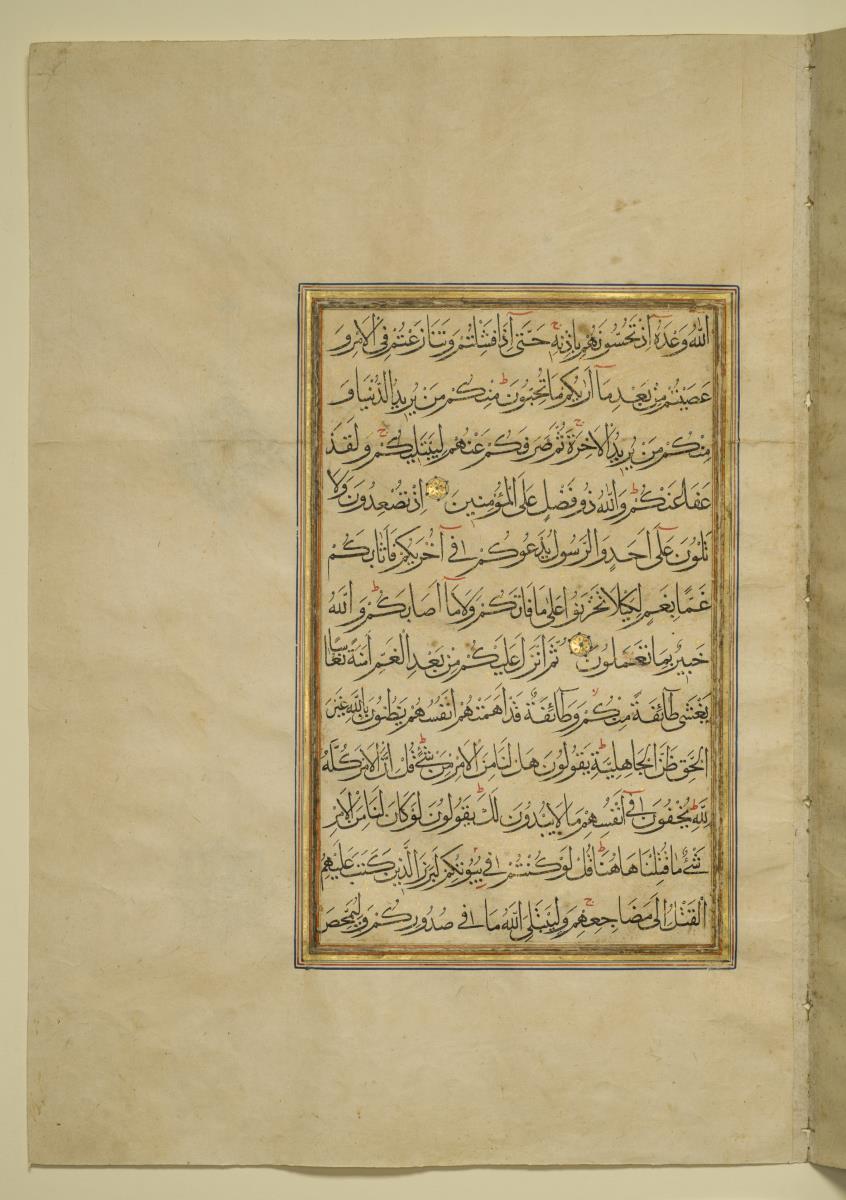 اللَّهُ وَعْدَهُ إِذْ تَحُسُّونَهُمْ بِإِذْنِهِ حَتَّى إِذَا فَشِلْتُمْ وَتَنَازَعْتُمْ فِي الْأَمْرِ وَ
عَصَيْتُمْ مِنْ بَعْدِ مَا أَرَاكُمْ مَا تُحِبُّونَ مِنْكُمْ مَنْ يُرِيدُ الدُّنْيَا وَ
مِنْكُمْ مَنْ يُرِيدُ الْآخِرَةَ ثُمَّ صَرَفَكُمْ عَنْهُمْ لِيَبْتَلِيَكُمْ وَلَقَدْ
عَفَا عَنْكُمْ وَاللَّهُ ذُو فَضْلٍ عَلَى الْمُؤْمِنِينَ إِذْ تُصْعِدُونَ وَلَا
تَلْوُونَ عَلَى أَحَدٍ وَالرَّسُولُ يَدْعُوكُمْ فِي أُخْرَيكُمْ فَأَثَابَكُمْ
غَمًّا بِغَمٍّ لِكَيْلَا تَحْزَنُوا عَلَى مَا فَاتَكُمْ وَلَا مَا أَصَابَكُمْ وَاللَّهُ
خَبِيرٌ بِمَا تَعْمَلُونَ ثُمَّ أَنْزَلَ عَلَيْكُمْ مِنْ بَعْدِ الْغَمِّ أَمَنَةً نُعَاسًا
يَغْشَى طَائِفَةً مِنْكُمْ وَطَائِفَةٌ قَدْ أَهَمَّتْهُمْ أَنْفُسُهُمْ يَظُنُّونَ بِاللَّهِ غَيْرَ
الْحَقِّ ظَنَّ الْجَاهِلِيَّةِ يَقُولُونَ هَلْ لَنَا مِنَ الْأَمْرِ مِنْ شَيْءٍ قُلْ إِنَّ الْأَمْرَ كُلَّهُ
لِلَّهِ يُخْفُونَ فِي أَنْفُسِهِمْ مَا لَا يُبْدُونَ لَكَ يَقُولُونَ لَوْ كَانَ لَنَا مِنَ الْأَمْرِ
شَيْءٌ مَا قُتِلْنَا هَاهُنَا قُلْ لَوْ كُنْتُمْ فِي بُيُوتِكُمْ لَبَرَزَ الَّذِينَ كُتِبَ عَلَيْهِمُ
الْقَتْلُ إِلَى مَضَاجِعِهِمْ وَلِيَبْتَلِيَ اللَّهُ مَا فِي صُدُورِكُمْ وَلِيُمَحِّصَ